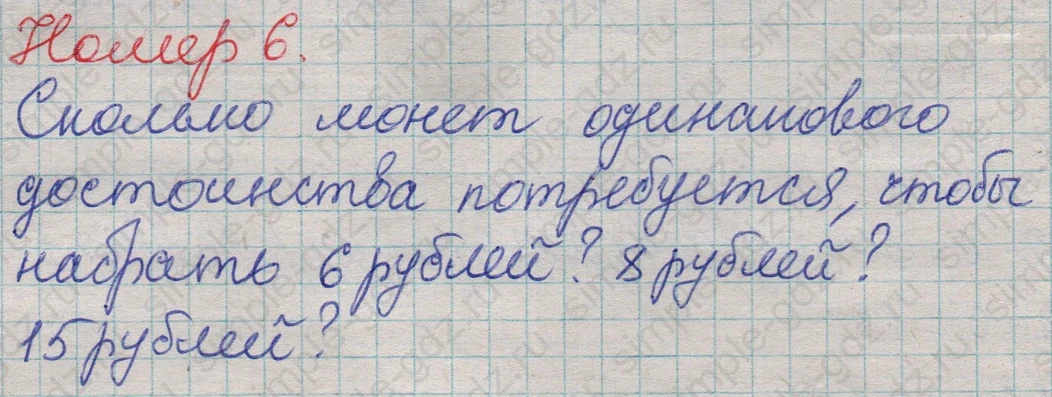 Номер 6.
Сколько монет одинакового
достоинства потребуется, чтобы
набрать 6 рублей? 8 рублей?
15 рублей?